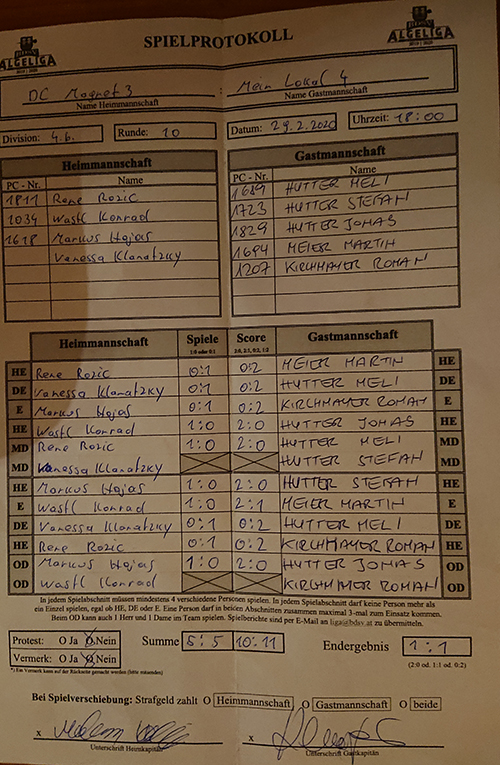 ALGELIGA SPIELPROTOKOLL ALGELIGA
2019 | 2020
DC Magnet 3 : Mein Lokal 4
Name Heimmannschaft Name Gastmannschaft
Division: 4.6. Runde: 10 Datum: 29.2.2020 Uhrzeit: 18:00
Heimmannschaft Gastmannschaft
PC - Nr. Name PC - Nr. Name
1811 Rene Rozic 1689 HUTTER MELI
1034 Wastl Konrad 1723 HUTTER STEFAN
1618 Markus Hojas 1829 HUTTER JONAS
Vanessa Klanatzky 1694 MEIER MARTIN
1207 KIRCHMAYER ROMAN
Heimmannschaft Spiele Score Gastmannschaft
1:0 oder 0:1 2:0, 2:1, 0:2, 1:2
HE Rene Rozic 0:1 0:2 MEIER MARTIN HE
DE Vanessa Klanatzky 0:1 0:2 HUTTER MELI DE
E Markus Hojas 0:1 0:2 KIRCHMAYER ROMAN E
HE Wastl Konrad 1:0 2:0 HUTTER JONAS HE
MD Rene Rozic 1:0 2:0 HUTTER MELI MD
MD Vanessa Klanatzky HUTTER STEFAN MD
HE Markus Hojas 1:0 2:0 HUTTER STEFAN HE
E Wastl Konrad 1:0 2:1 MEIER MARTIN E
DE Vanessa Klanatzky 0:1 0:2 HUTTER MELI DE
HE Rene Rozic 0:1 0:2 KIRCHMAYER ROMAN HE
OD Markus Hojas 1:0 2:0 HUTTER JONAS OD
OD Wastl Konrad KIRCHMAYER ROMAN OD
In jedem Spielabschnitt müssen mindestens 4 verschiedene Personen spielen. In jedem Spielabschnitt darf keine Person mehr als
ein Einzel spielen, egal ob HE, DE oder E. Eine Person darf in beiden Abschnitten zusammen maximal 3-mal zum Einsatz kommen.
Beim OD kann auch 1 Herr und 1 Dame im Team spielen. Spielberichte sind per E-Mail an liga@bdav.at zu übermitteln.
Protest: O Ja O Nein Summe 5:5 10:11 Endergebnis 1:1
Vermerk: O Ja O Nein (2:0 od. 1:1 od. 0:2)
*) Ein Vermerk kann auf der Rückseite gemacht werden (bitte ankreuzen)
Bei Spielverschiebung: Strafgeld zahlt O Heimmannschaft O Gastmannschaft O beide
x x
Unterschrift Heimkapitän Unterschrift Gastkapitän